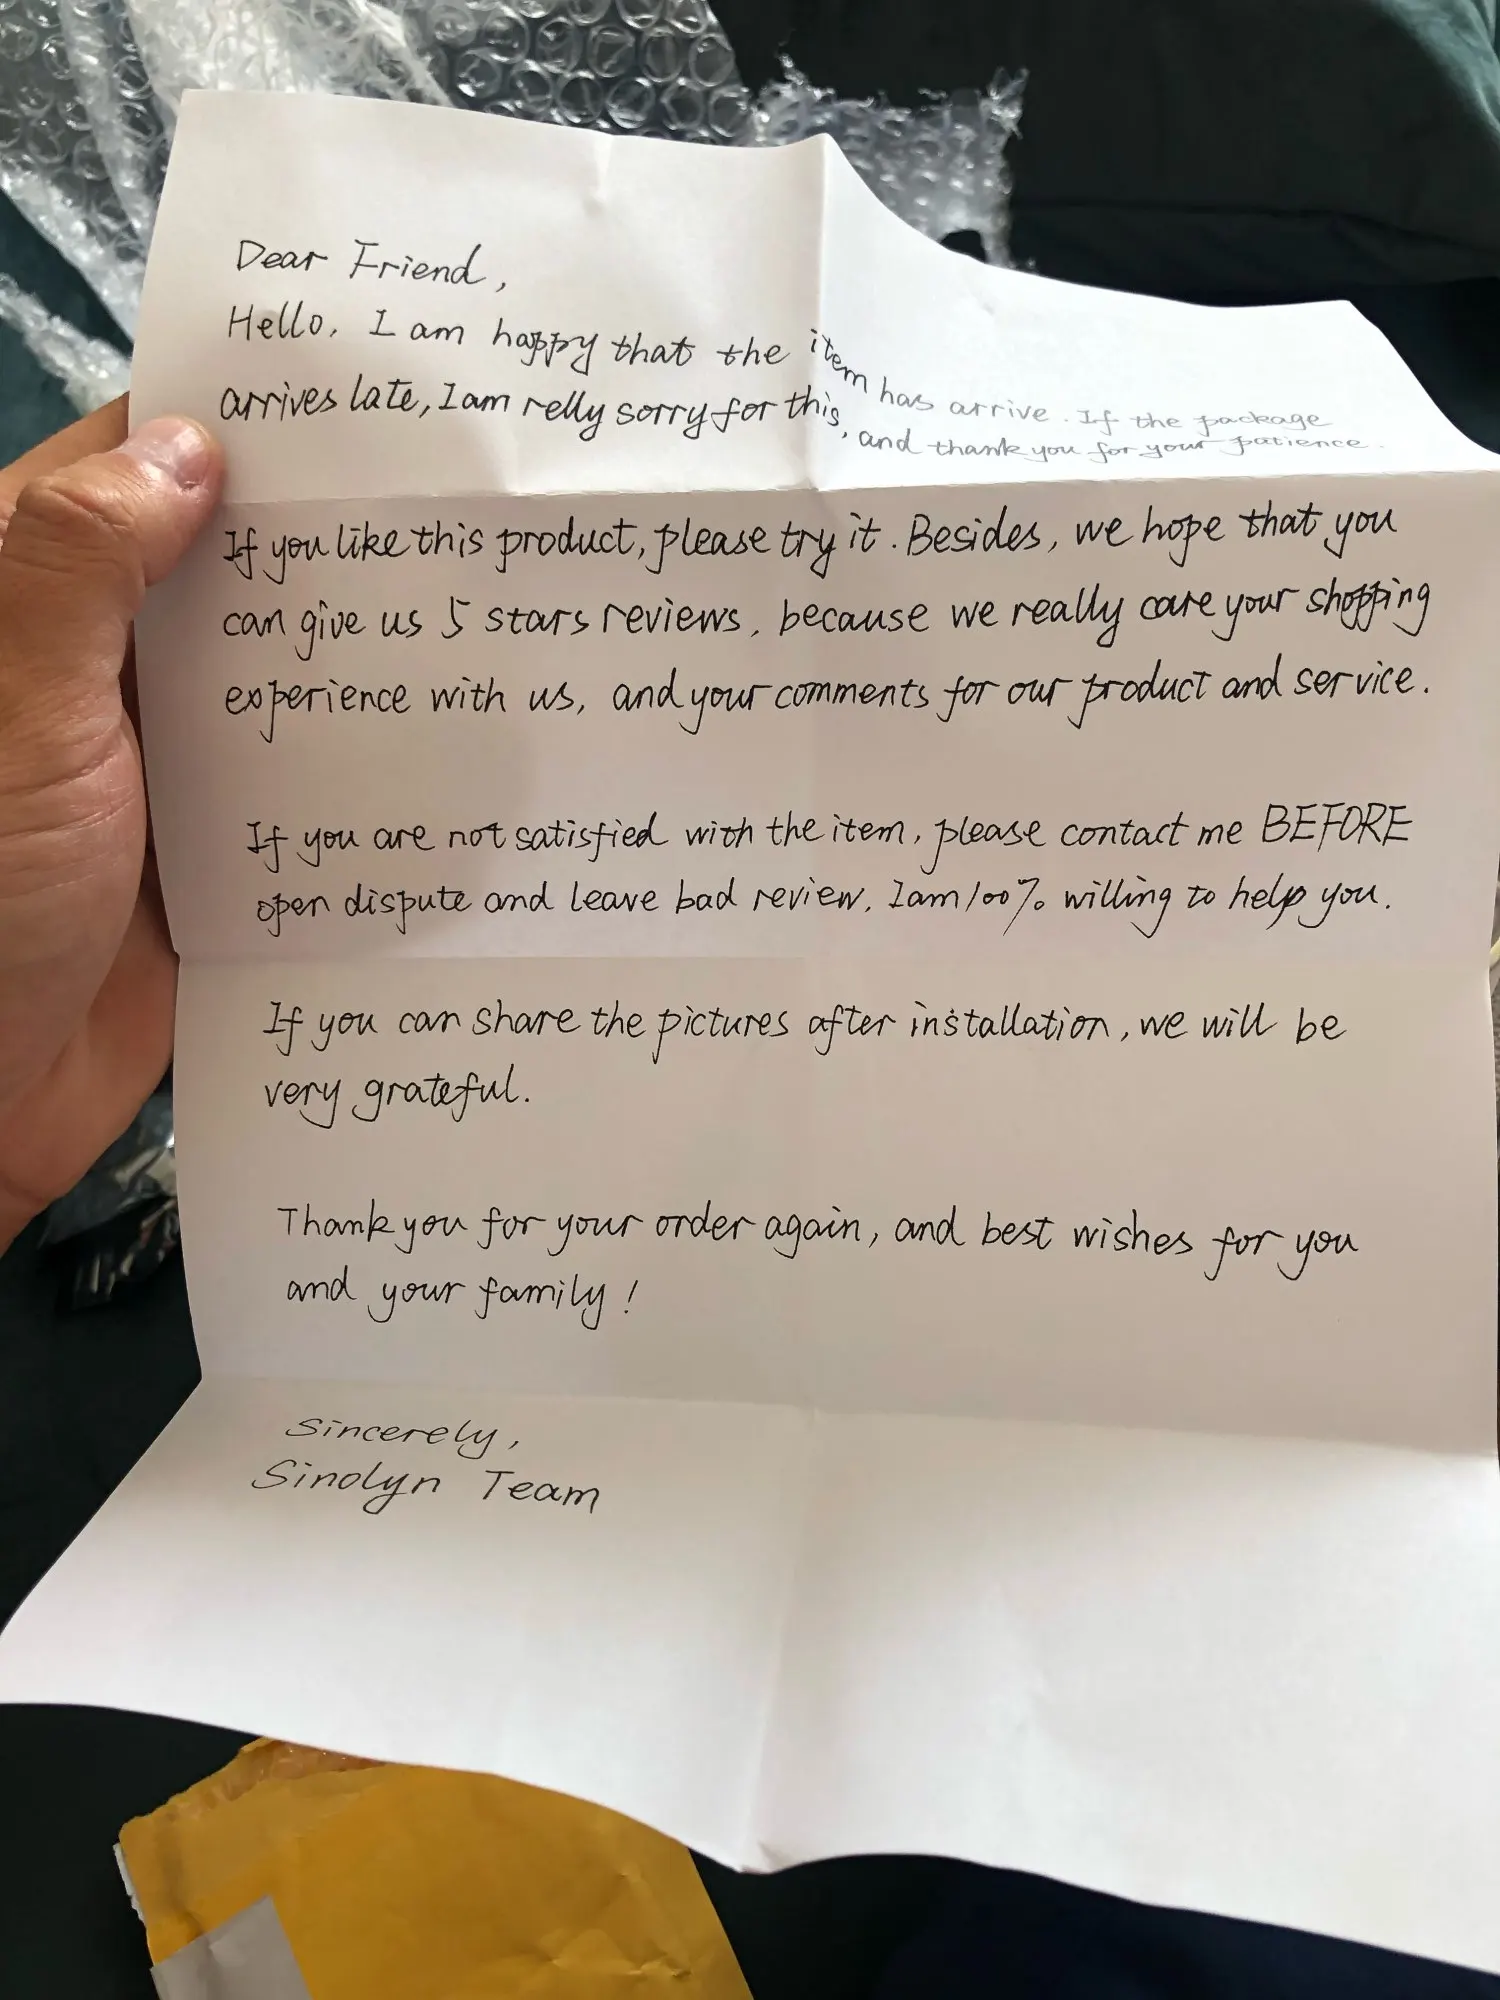 Dear Friend,
Hello, I am happy that the item has arrive. If the package
arrives late, I am relly sorry for this, and thank you for your patience.
If you like this product, please try it. Besides, we hope that you
can give us 5 stars reviews, because we really care your shopping
experience with us, and your comments for our product and service.
If you are not satisfied with the item, please contact me BEFORE
open dispute and leave bad review, I am 100% willing to help you.
If you can share the pictures after installation, we will be
very grateful.
Thank you for your order again, and best wishes for you
and your family!
Sincerely,
Sinolyn Team